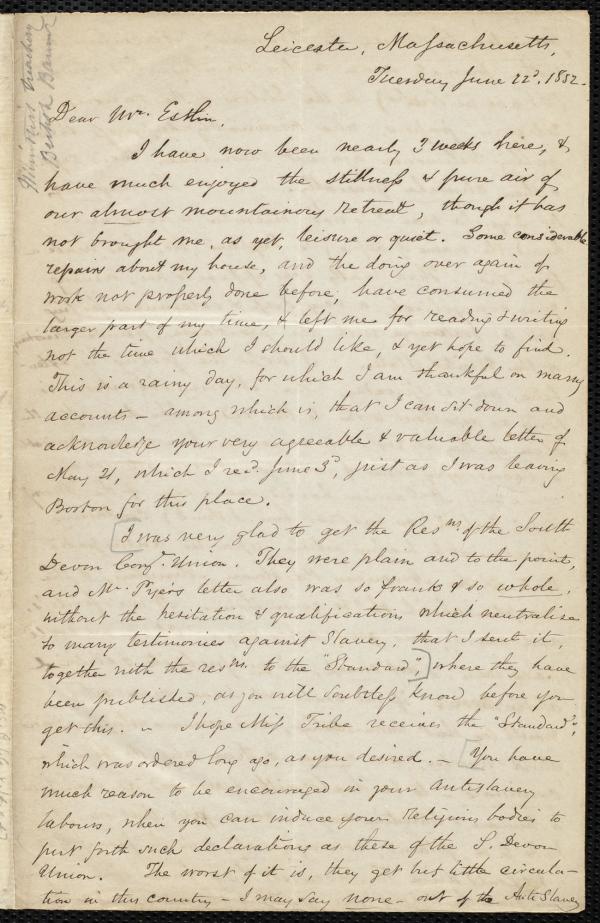 Leicester, Massachusetts,
Tuesday June 22d. 1852.
Dear Mr. Estlin,
I have now been nearly 3 weeks here, &
have much enjoyed the stillness & pure air of
our almost mountainous retreat, though it has
not brought me, as yet, leisure or quiet. Some considerable
repairs about my house, and the doing over again of
work not properly done before, have consumed the
larger part of my time, & left me for reading & writing
not the time which I should like, & yet hope to find.
This is a rainy day, for which I am thankful on many
accounts – among which is, that I can sit down and
acknowledge your very agreeable & valuable letter of
May 21, which I recd. June 3d, just as I was leaving
Boston for this place.
[I was very glad to get the Resns. of the South
Devon Congl. Union. They were plain and to the point,
and Mr. Pyer's letter also was so frank & so whole,
without the hesitation & qualifications which neutralize
so many testimonies against Slavery, that I sent it,
together with the resns. to the "Standard",] where they have
been published, as you will doubtless know before you
get this. – I hope Miss Tribe receives the "Standard",
which was ordered long ago, as you desired. – [You have
much reason to be encouraged in your Antislavery
labours, when you can induce your Religious bodies to
put forth such declarations as these of the S. Devon
Union. The worst of it is, they get but little circula-
tion in this country – I may say none – out of the AntiSlavery
British Banner